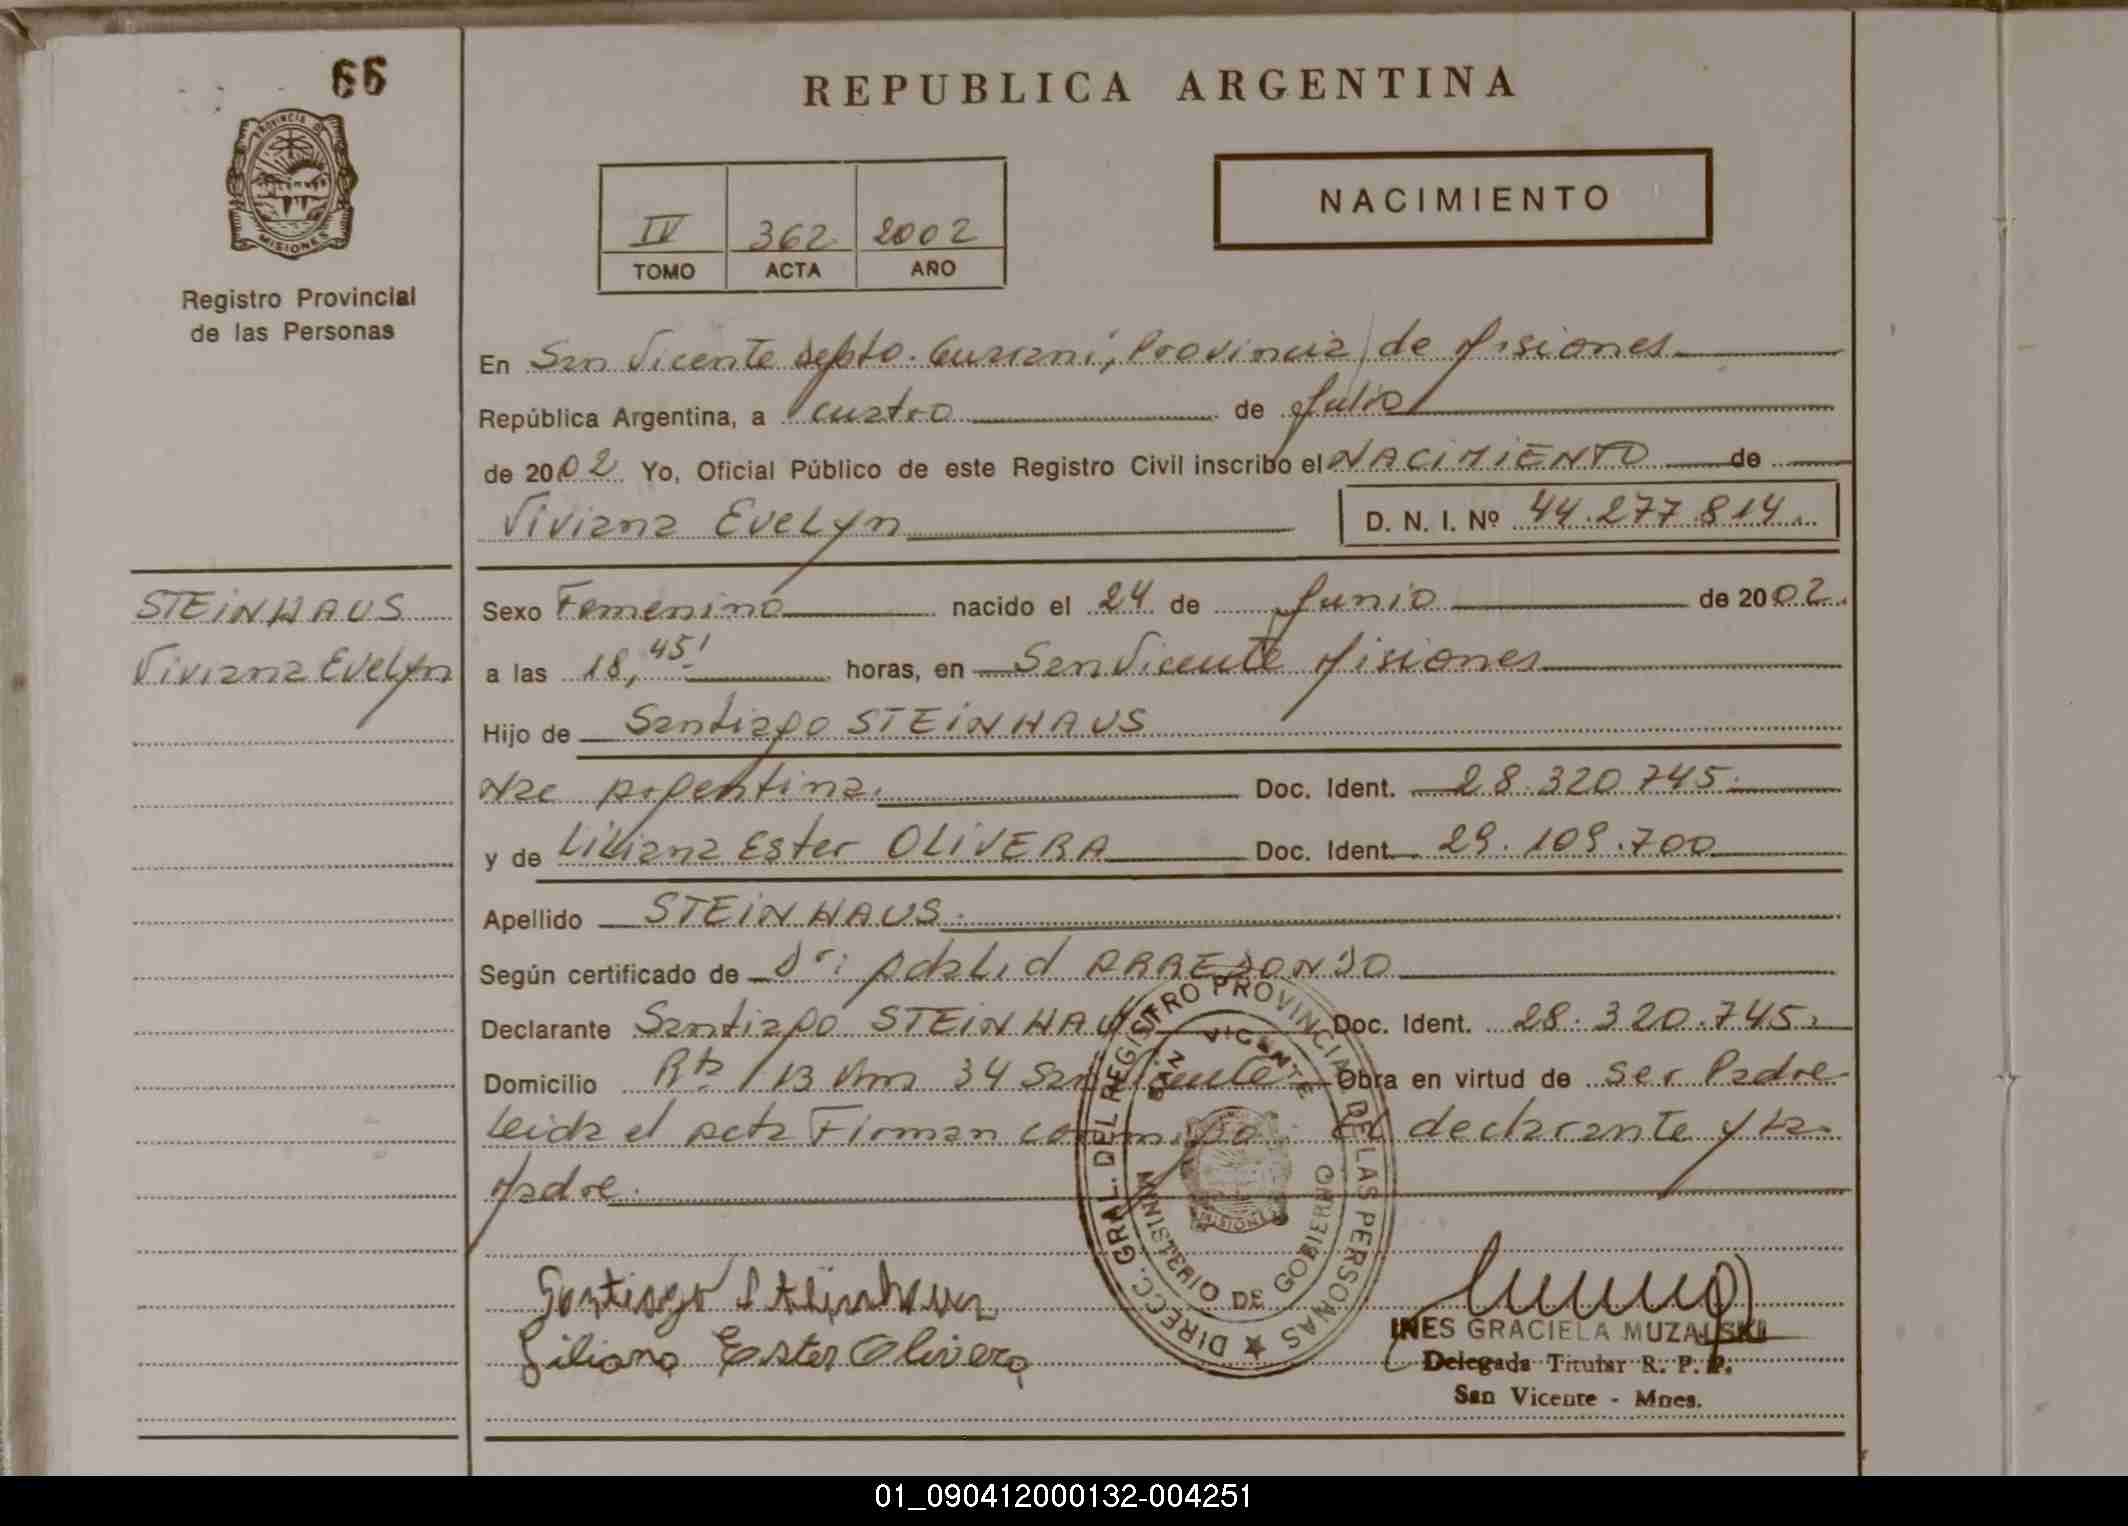 66
PROVINCIA DE
MISIONES
Registro Provincial
de las Personas
REPUBLICA ARGENTINA
IV 362 2002
TOMO ACTA AÑO
NACIMIENTO
En San Vicente Depto. Guarani, Provincia de Misiones
República Argentina, a cuatro de Julio
de 2002 Yo, Oficial Público de este Registro Civil inscribo el NACIMIENTO de
Viviana Evelyn D. N. I. Nº 44.277.814.
STEINHAUS
Viviana Evelyn
Sexo Femenino nacido el 24 de Junio de 2002.
a las 18,45' horas, en San Vicente Misiones
Hijo de Santiago STEINHAUS
Nac Argentina. Doc. Ident. 28.320.745.
y de Liliana Ester OLIVERA Doc. Ident. 29.109.700
Apellido STEINHAUS.
Según certificado de Dr: Adalid ARREDONDO
Declarante Santiago STEINHAUS Doc. Ident. 28.320.745.
Domicilio Rta 13 Km 34 San Vicente Obra en virtud de ser Padre
Leida el acta Firman conmigo: El declarante y La
Madre.
DIRECC. GRAL. DEL REGISTRO PROVINCIAL DE LAS PERSONAS
SAN VICENTE
MINISTERIO DE GOBIERNO
MISIONES
Santiago Steinhaus
Liliana Ester Olivera
INES GRACIELA MUZALSKI
Delegada Titular R. P. P.
San Vicente - Mnes.
01_090412000132-004251